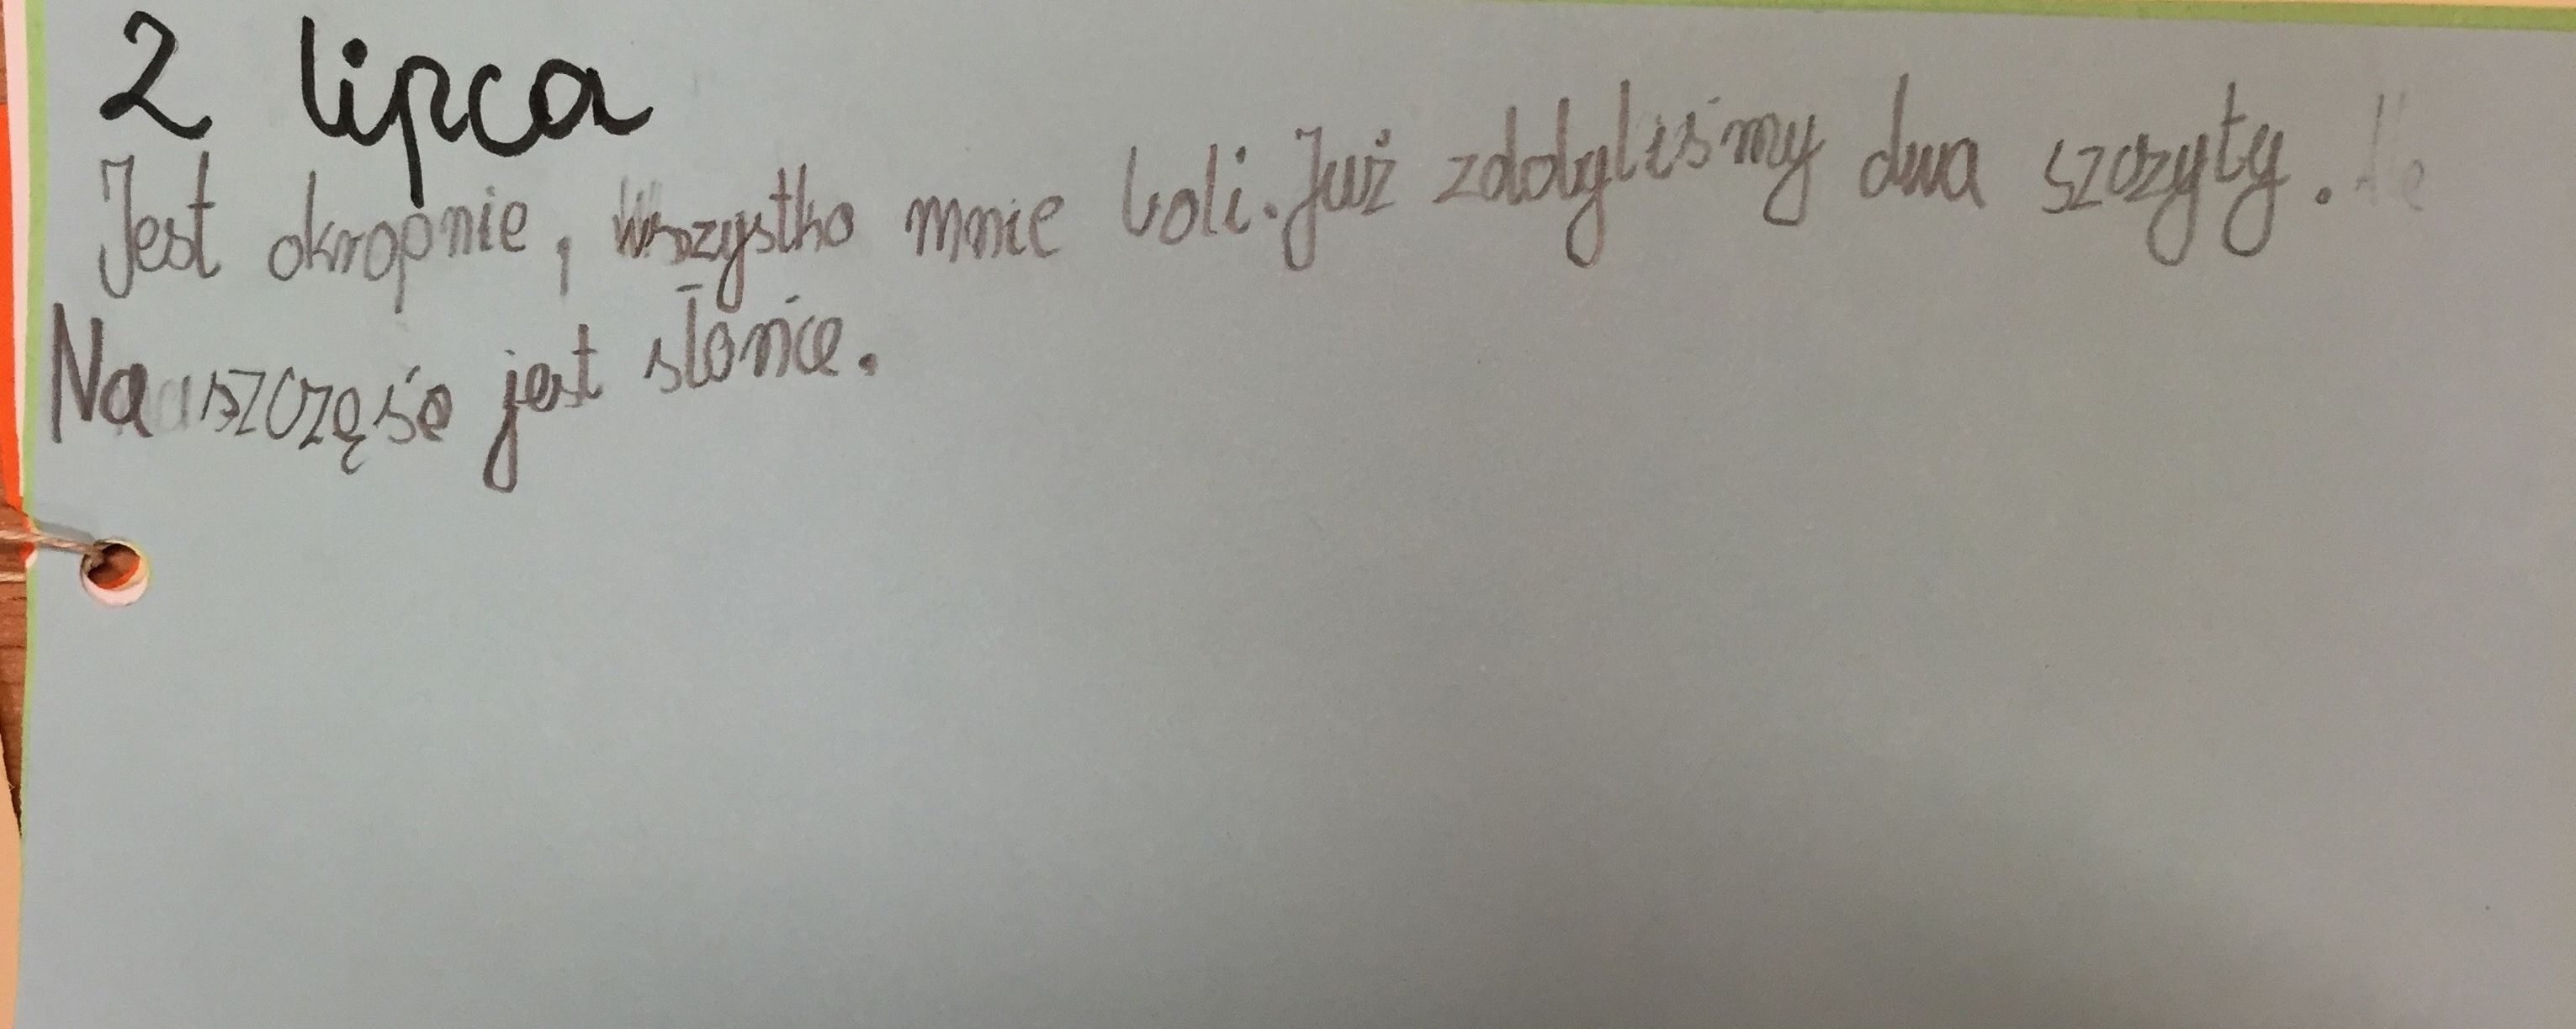 2 lipca
Jest okropnie, wszystko mnie boli. Już zdobyliśmy dwa szczyty.
Na szczęśe jest słońce.